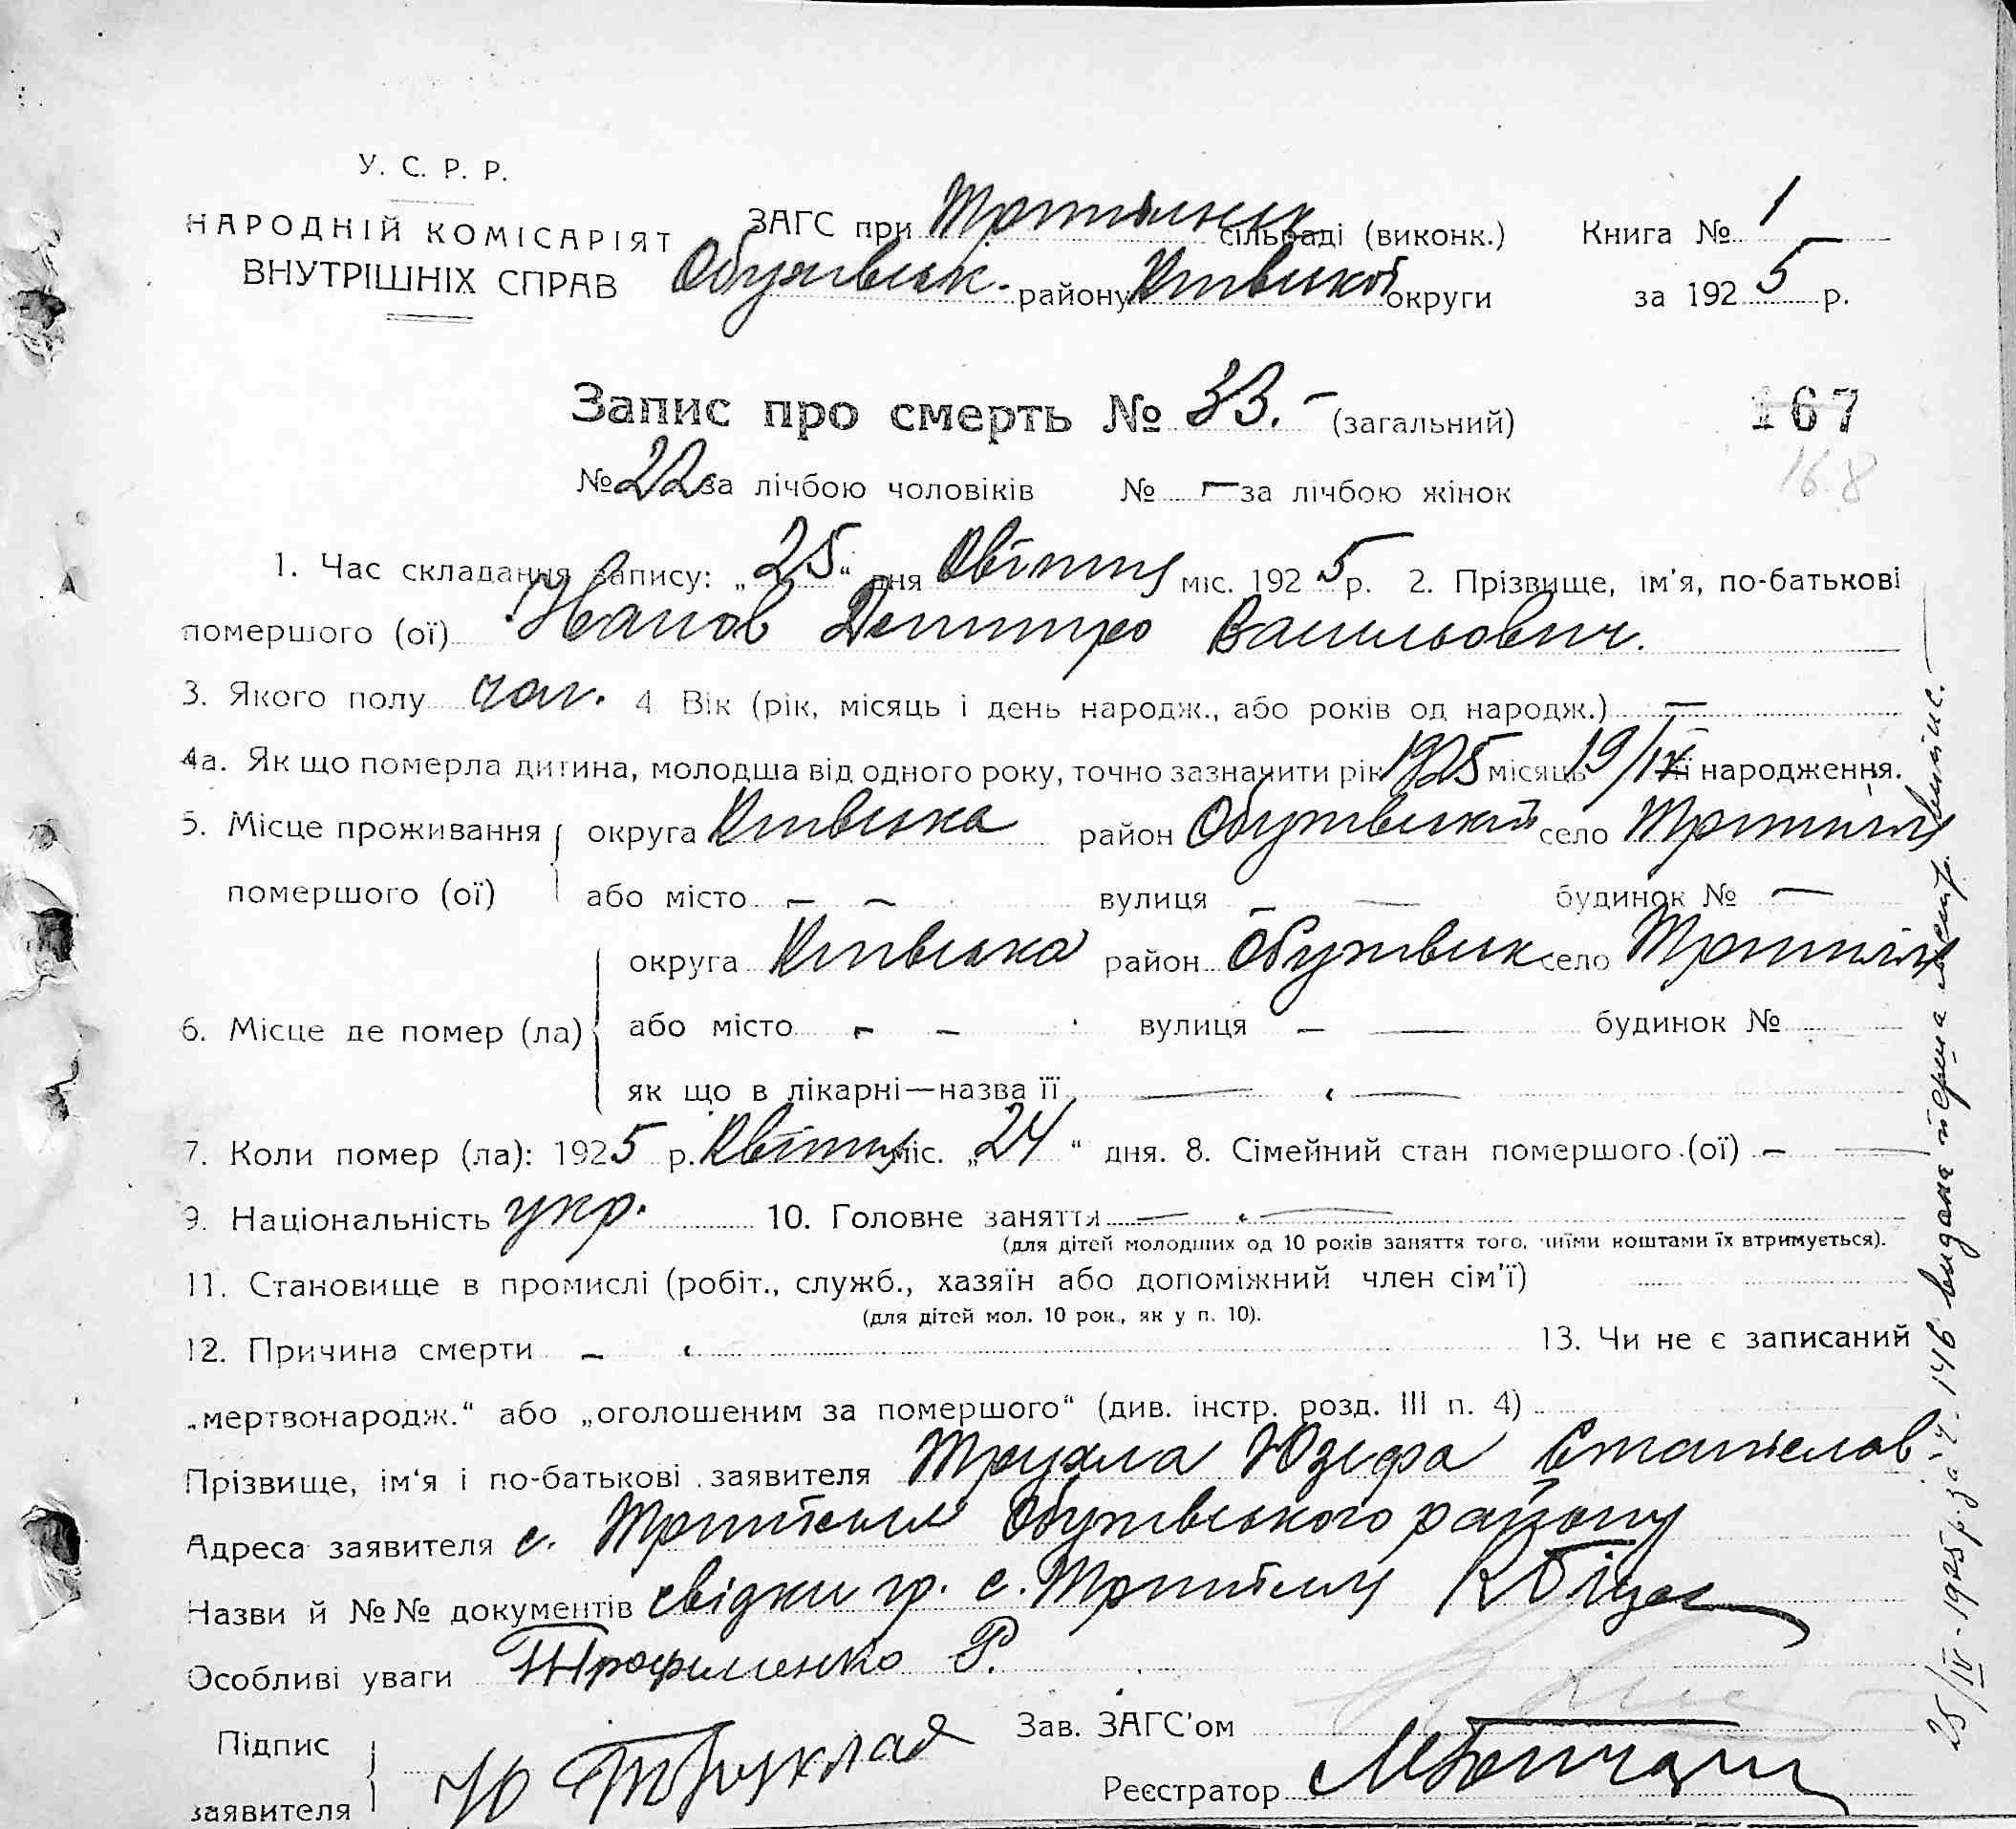 У. С. Р. Р.
НАРОДНІЙ КОМІСАРІЯТ
ВНУТРІШНІХ СПРАВ
ЗАГС при Трипільськ сільраді (виконк.)
Обухівськ. району Київської округи
Книга № 1
за 1925 р.
Запис про смерть № 33.- (загальний)
167
168
№ 22 за лічбою чоловіків № — за лічбою жінок
1. Час складання запису: „25“ дня Квітня міс. 1925 р. 2. Прізвище, ім'я, по-батькові
помершого (ої) Іванов Дмитро Васильович.
3. Якого полу чол. 4 Вік (рік, місяць і день народж., або років од народж.) —
4а. Як що померла дитина, молодша від одного року, точно зазначити рік 1925 місяць 19/IV дні народження.
5. Місце проживання помершого (ої) округа Київська район Обухівський село Трипілля
або місто — — вулиця — — будинок № —
6. Місце де помер (ла) округа Київська район Обухівськ село Трипілля
або місто — — вулиця — — будинок №
як що в лікарні—назва її — „ —
7. Коли помер (ла): 1925 р. Квітня міс. „24“ дня. 8. Сімейний стан помершого (ої) — —
9. Національність укр. 10. Головне заняття — „ —
(для дітей молодших од 10 років заняття того, чиїми коштами їх втримується).
11. Становище в промислі (робіт., служб., хазяїн або допоміжний член сім'ї)
(для дітей мол. 10 рок., як у п. 10).
12. Причина смерти — „ 13. Чи не є записаний
„мертвонародж.“ або „оголошеним за помершого“ (див. інстр. розд. III п. 4)
Прізвище, ім'я і по-батькові заявителя Трухла Юзефа Станіслав
Адреса заявителя с. Трипілля Обухівського району
Назви й №№ документів свідки гр. с. Трипілля
Особливі уваги Трофименко Р.
Підпис заявителя Ю
Зав. ЗАГС'ом
Реєстратор
25/IV-1925 р. за ч. 146 видана перша випис.